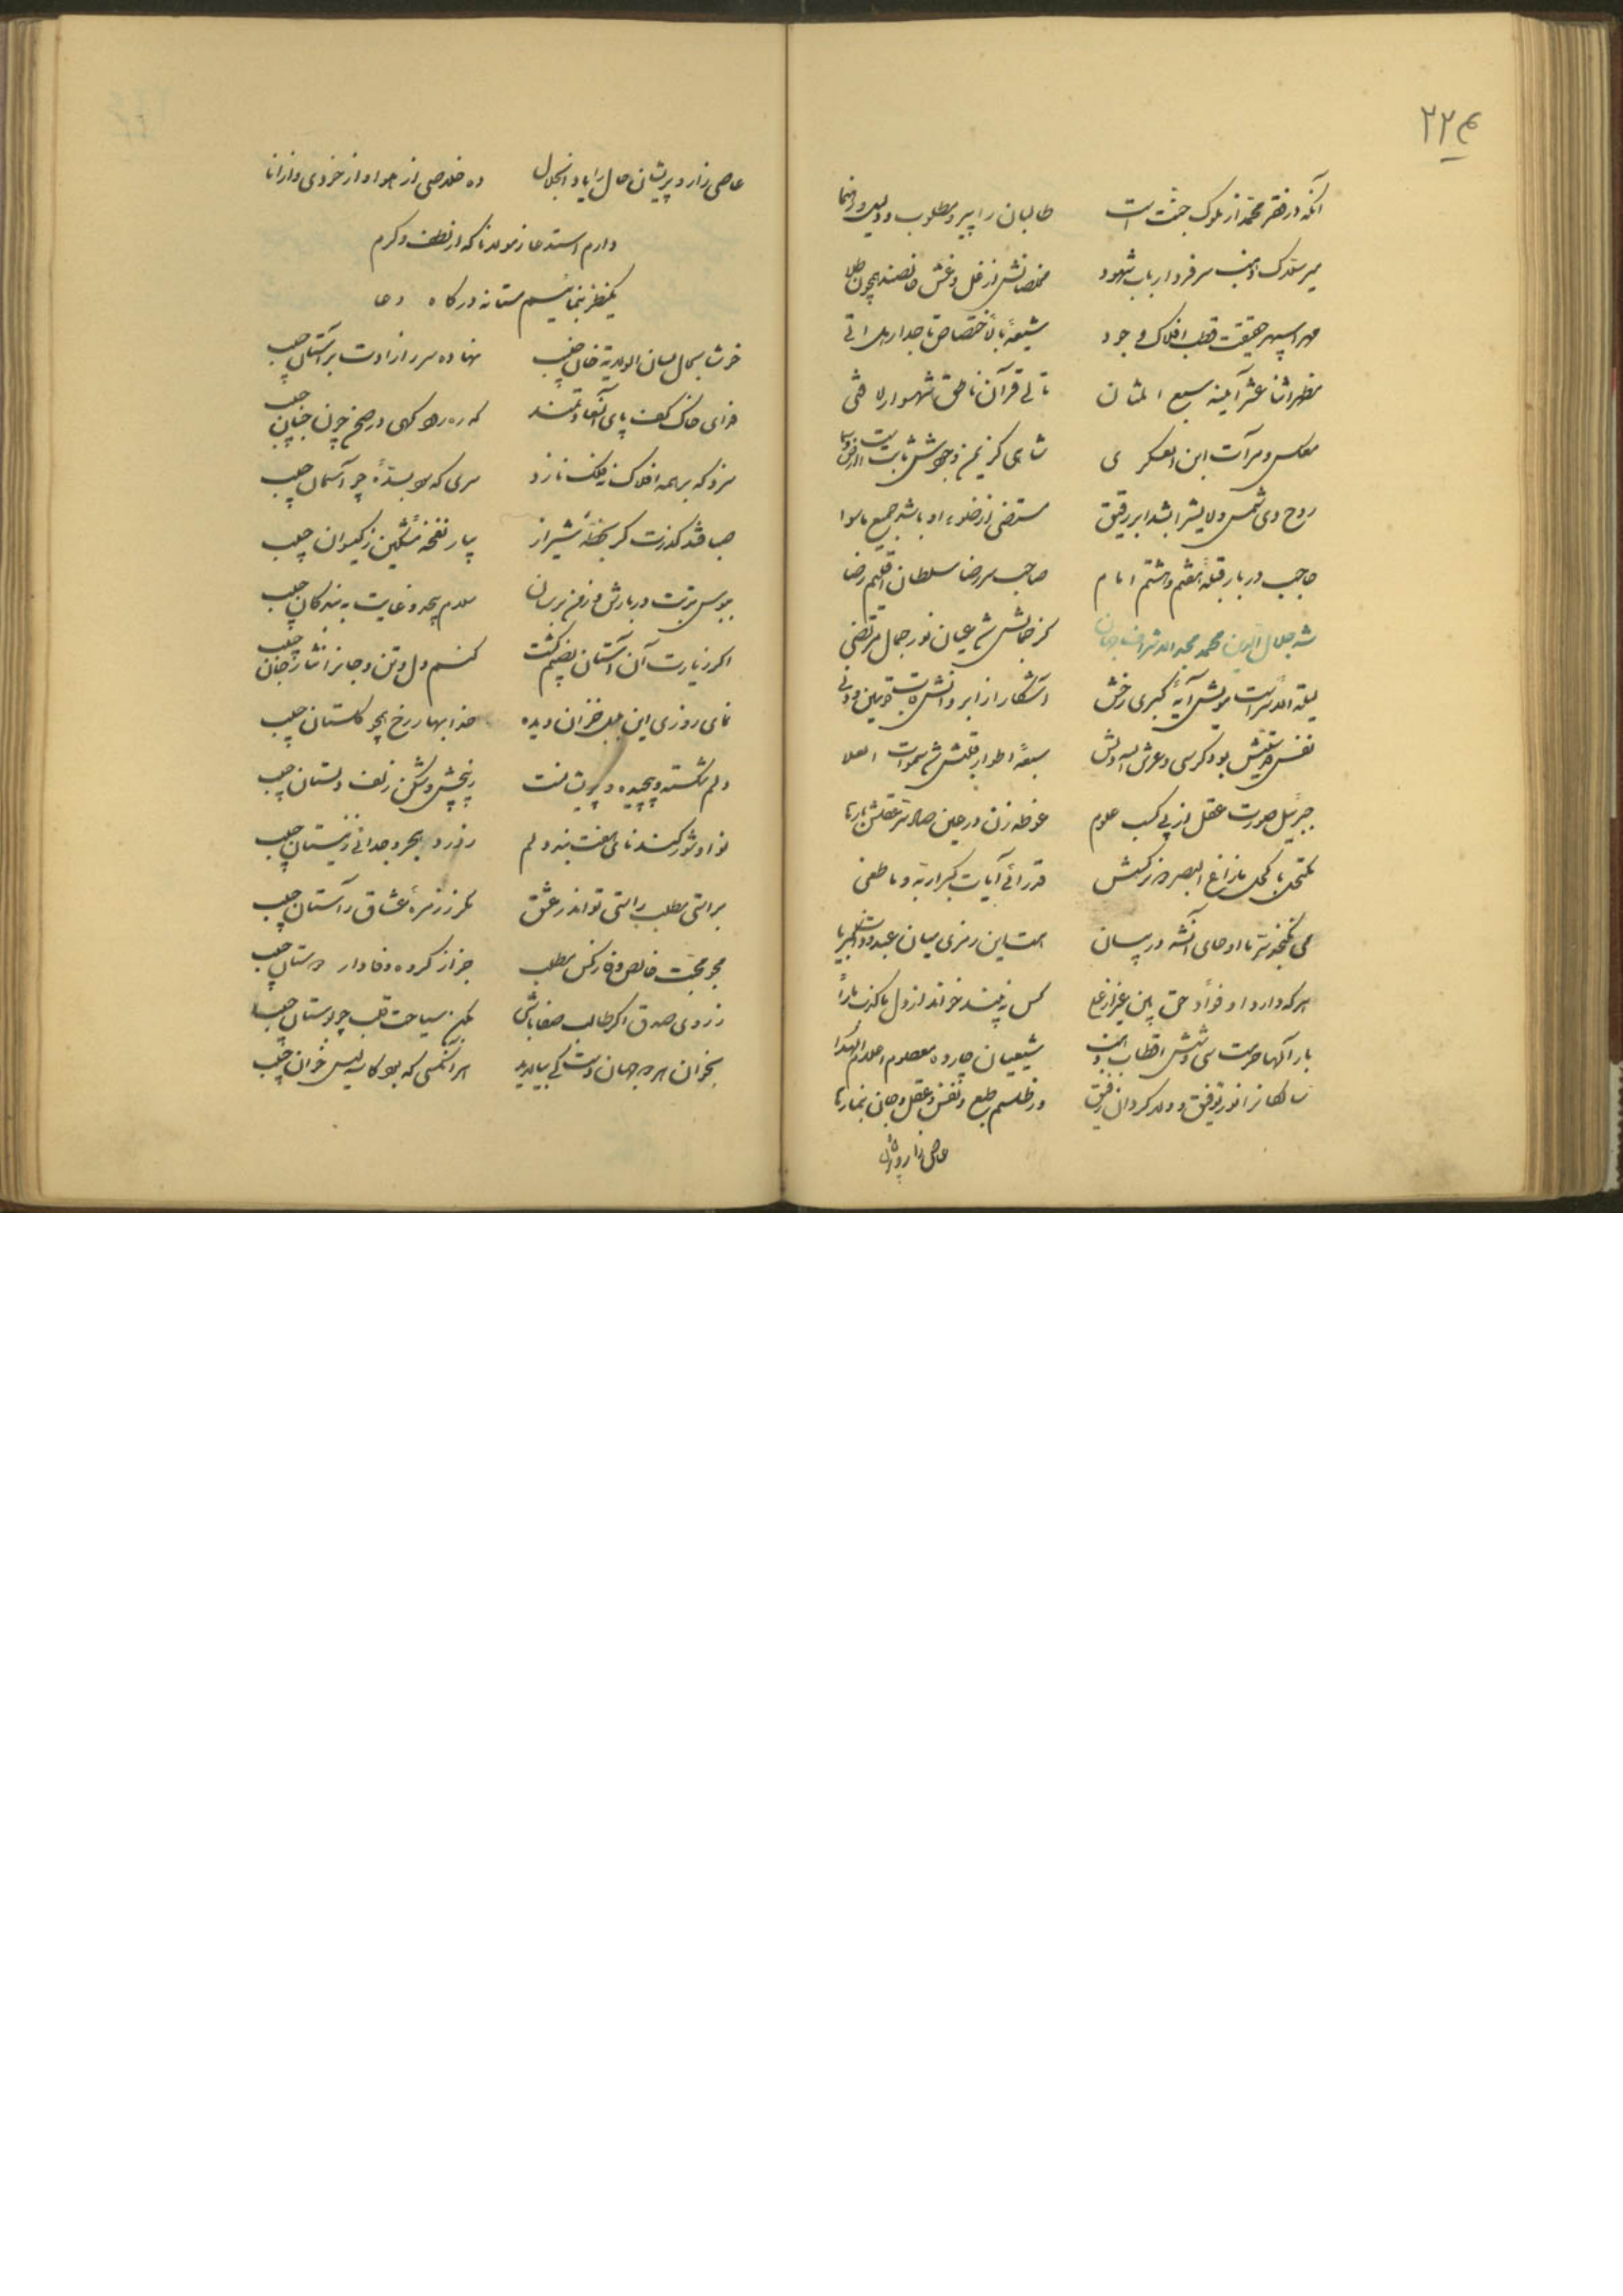 ۲۲۴
آنکه در فقر محمد از ملوک جنت است طالبان را پیر و مطلوب و دلیل و رهنما
میر سرفرد ارباب شهود مخلصانش از غل و غش خالصند همچون طلا
مهر سپهر حقیقت قطب افلاک وجود شیعه بالاختصاص تاجدار هل اتی
مظهر اثنا عشر آئینه سبع المثان تالی قرآن ناطق شهسوار لا فتی
عکس و مرآت ابن العسکری شاهی کز یمن وجودش ثابت است ارض و سما
روح وی شمس ولا بشر ابر رقیق مستضی از ضلوء او باشد جمیع ماسوا
حاجب دربار قبله هفتم و هشتم امام صاحب سر رضا سلطان اقلیم رضا
شه جلال الدین محمد مجد الاشراف جهان کز جمالش شد عیان نور جمال مرتضی
لیلة الاسراست مویش آیه کبری رخش آشکار از ابروانش قاب قوسین دنی
نفس قدسیش بود کرسی و عرش الله دلش سبعه اطوار قلبش شد سموات العلا
جبرئیل صورت عقل از پی کسب علوم غوطه زن در عین صاد
مکتحل با کحل مازاغ البصر نرگسش قد رای آیات کبرا ربه و ما طغی
می نگنجد سر ما اوحای در بیان هست این رمزی میان عبد و ذات کبریا
هر که دارد او فؤاد حق بین کس نه بیند خواند از دل ما کذب ما رأ
بار آلها حرمت سی و شش اقطاب دین شیعیان چارده معصوم اعلام الهدا
سالکانرا نور توفیق و ولا گردان رفیق در طلسم طبع و نفس و عقل و جان
عاصی زار و پریشان
عاصی زار و پریشان حال را یا ذالجلال ده خلاصی از هوا و از خودی و از انا
دارم استدعا ز مولانا که از لطف و کرم
یکنظر بنمائیم مستانه درگاه دعا
خوشا بحال نهاده سر ز ارادت بر آستان حبیب
فدای خاک کف پای آن سعادتمند که ره
سزد که بر همه افلاک یک فلک نازد سری که بود بسته چو آسمان حبیب
صبا فتد گذرت گر بخطه شیراز بیار نفخه مشکین ز گیسوان حبیب
ببوس تربت دربارش و ز من برسان سلام بیحد و غایت به بندگان حبیب
اگر زیارت آن آستان نصیبم گشت کنم دل و تن و جانرا نثار جان حبیب
نمای روزی این بلبل خزان دیده خدا بهار رخ همچو گلستان حبیب
دلم شکسته و پیچیده و پریشانست ز پیچش و شکن زلف دلستان حبیب
نوا و شور کند نای هفت بند دلم ز درد هجر و جدائی ز نیستان حبیب
براستی مطلب راستی تو اندر عشق مگر ز زمره عشاق راستان حبیب
مجو محبت خالص وفا ز کس مطلب جز از گروه وفادار دوستان حبیب
ز روی صدق اگر طالب صفا باشی بکن سیاحت قلب چو بوستان حبیب
بخوان هر دو جهان دست کی بیالاید هر آنکسی که بود کاسه لیس خوان حبیب